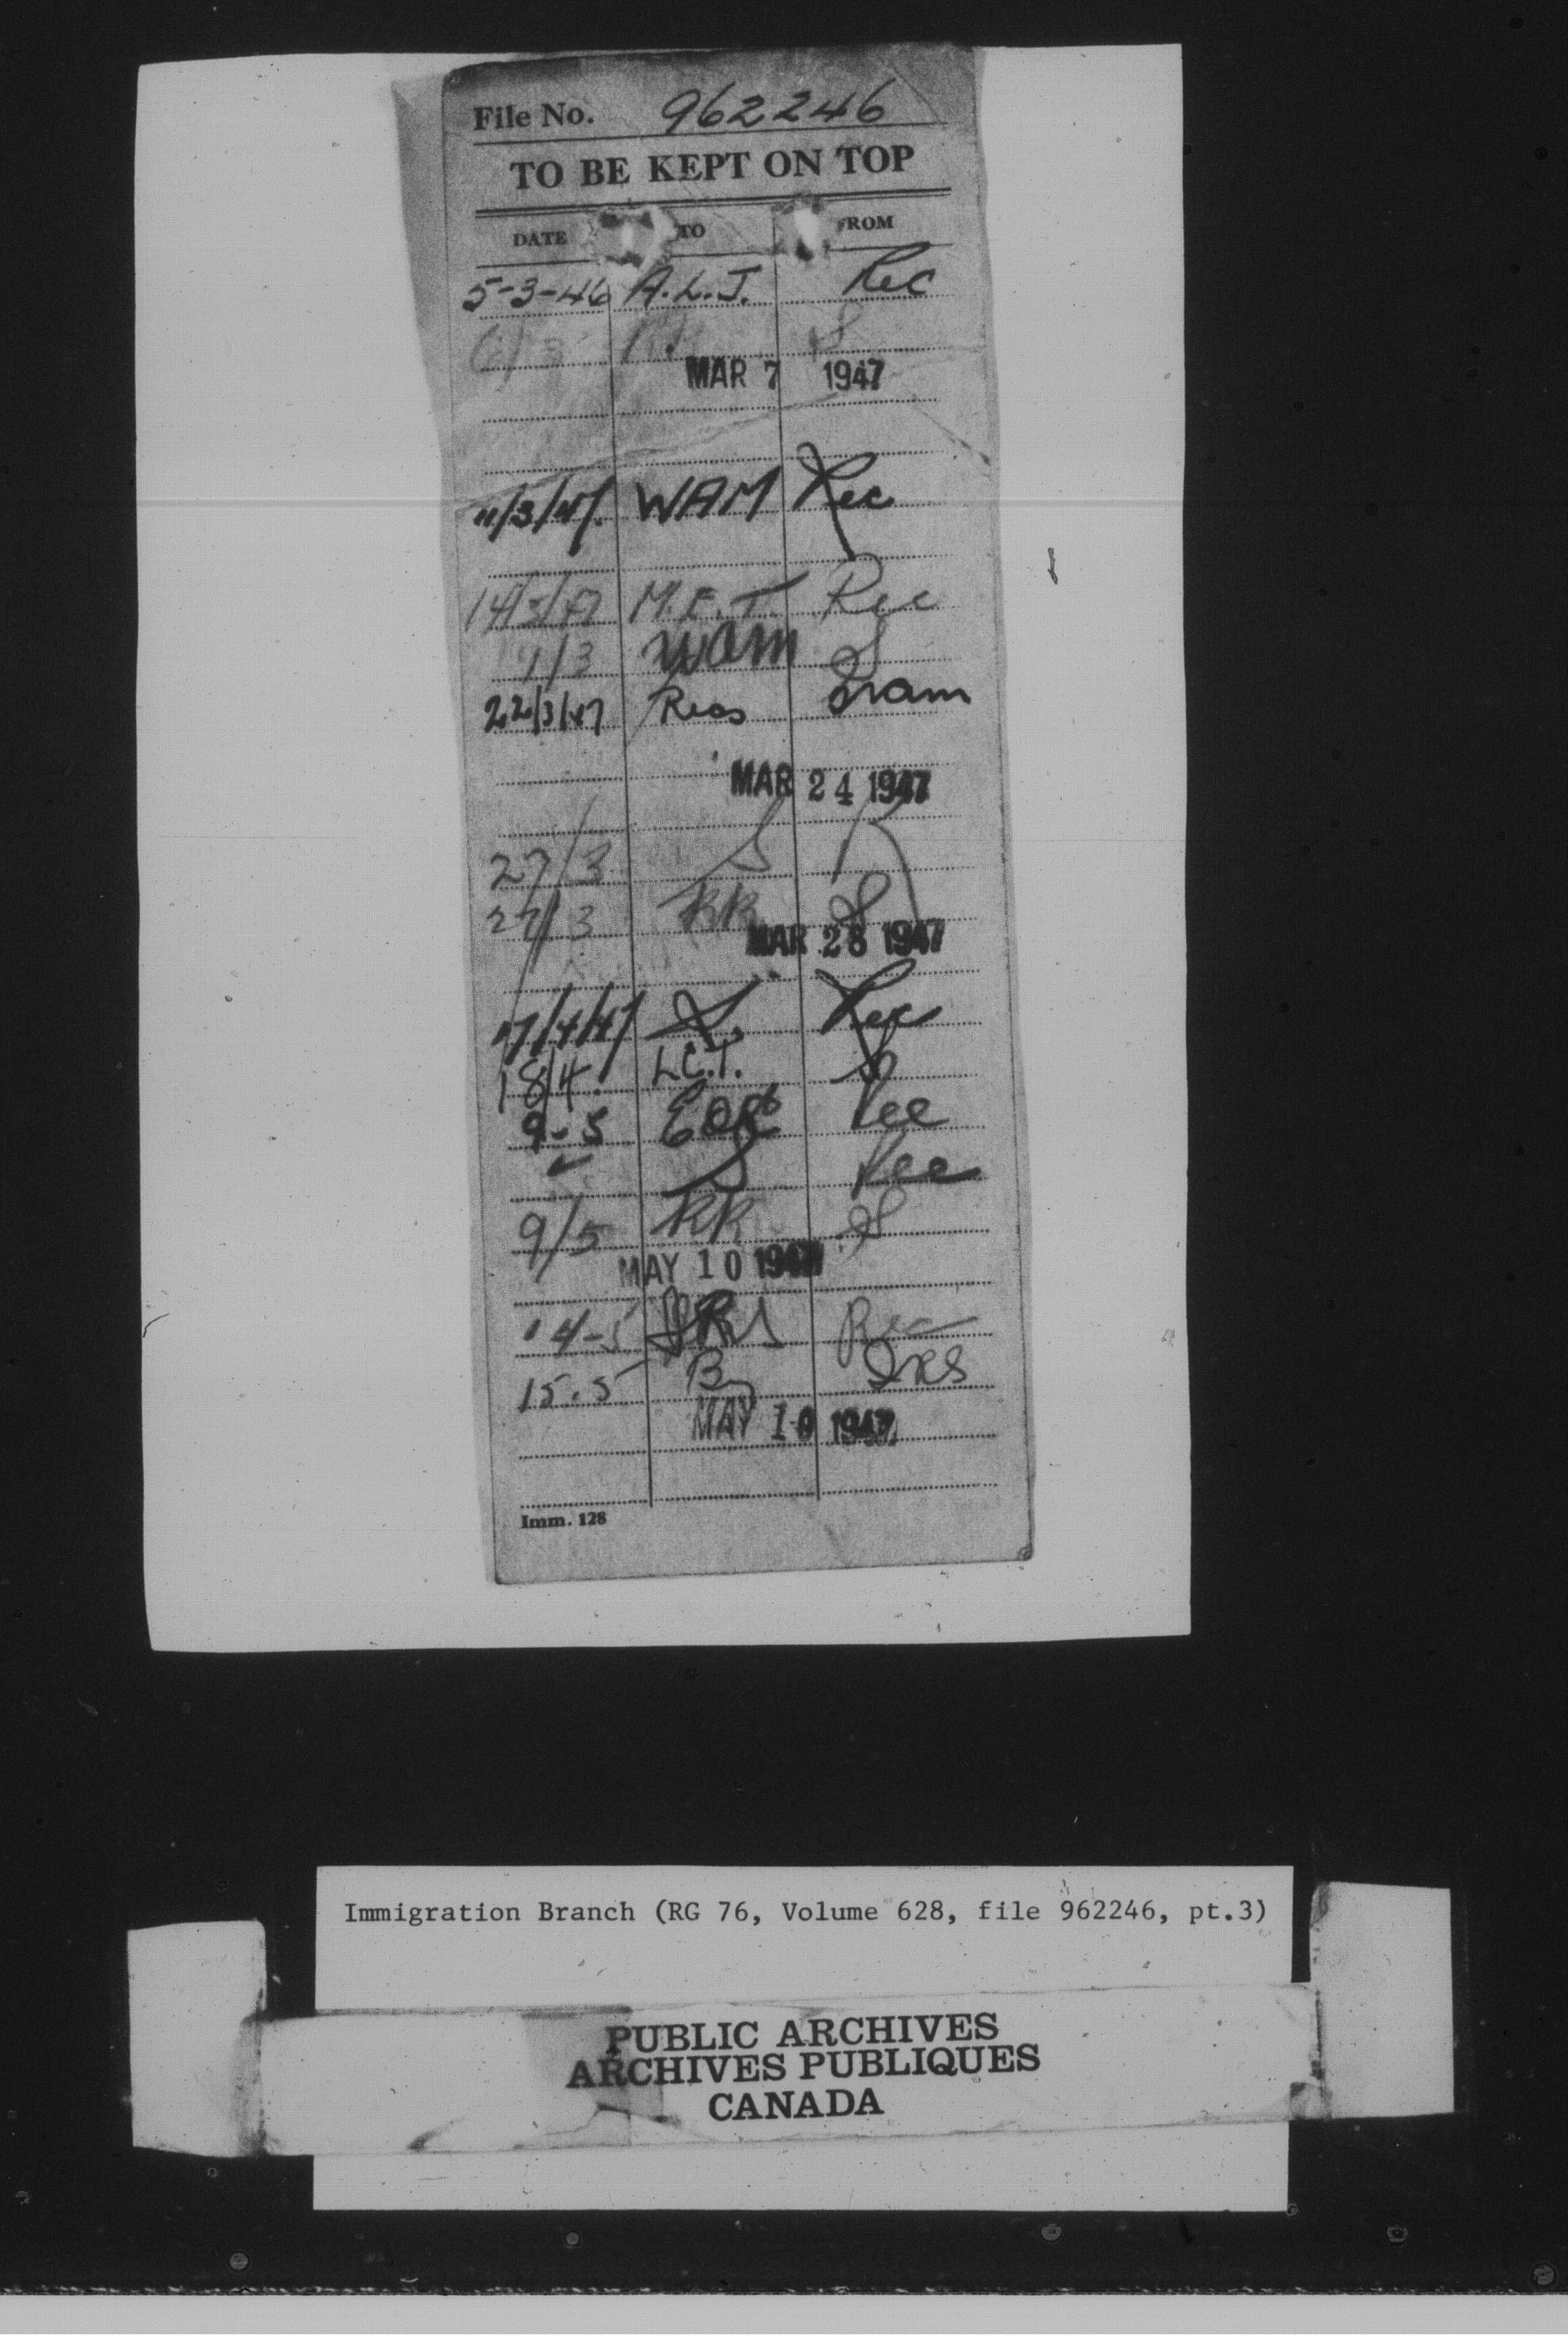 File No. 962246
TO BE KEPT ON TOP
DATE TO FROM
5-3-46 A.L.J. Rec
MAR 7 1947
11/3/47. WAM Rec
14/3/47 M.E.T. Rec
WAM S
22/3/47 Recs Wam
MAR 24 1947
27/3 S R
27/3 RR S
MAR 28 1947
17/4/47 S. Rec
18/4. L.C.T. S
9-5 Rec
S Rec
9/5 RR S
MAY 10 1947
14-5 Rec
15.5
MAY 1947
Imm. 128
Immigration Branch (RG 76, Volume 628, file 962246, pt.3)
PUBLIC ARCHIVES
ARCHIVES PUBLIQUES
CANADA